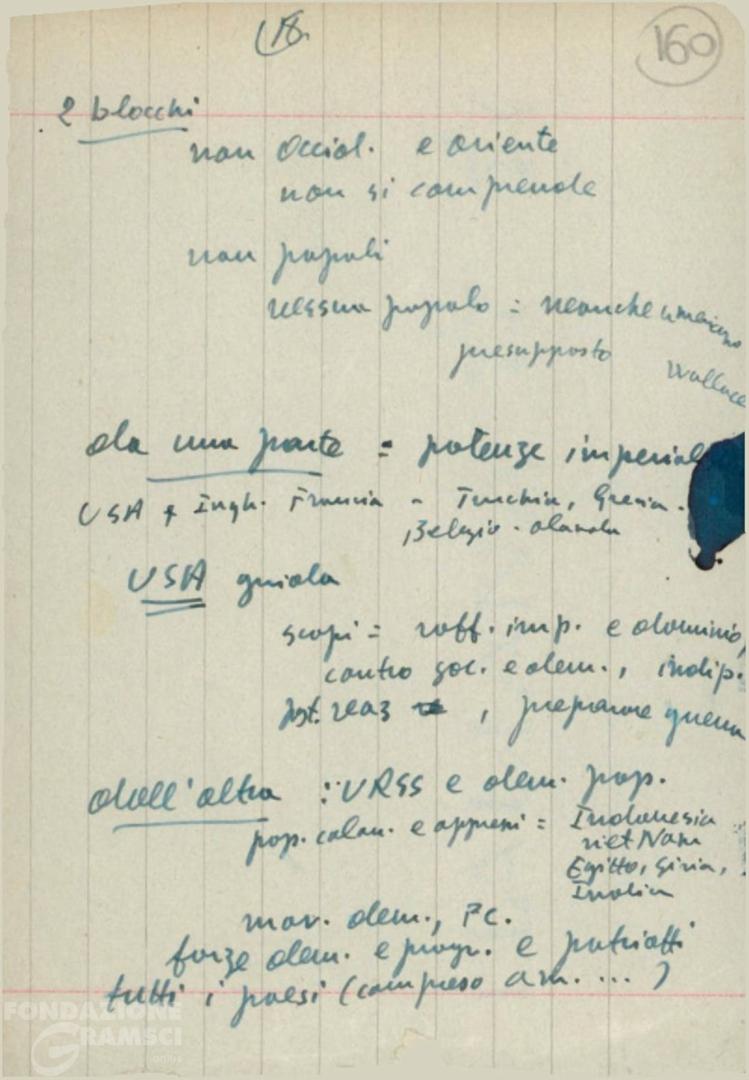 18.
160
2 blocchi
non Occid. e oriente
non si comprende
non popoli
nessun popolo = neanche americano
presupposto Wallace
da una parte = potenze imperial
USA + Ingh. Francia - Turchia, Grecia.
, Belgio - Olanda
USA guida
scopi = raff. imp. e dominio,
contro soc. e dem., indip.
reaz , preparare guerra
dall'altra : URSS e dem. pop.
pop. colon. e oppressi = Indonesia
Viet Nam
Egitto, Siria,
India
mov. dem., PC.
forze dem. e progr. e patriotti
tutti i paesi (compreso am. ... )
FONDAZIONE
GRAMSCI
onlus